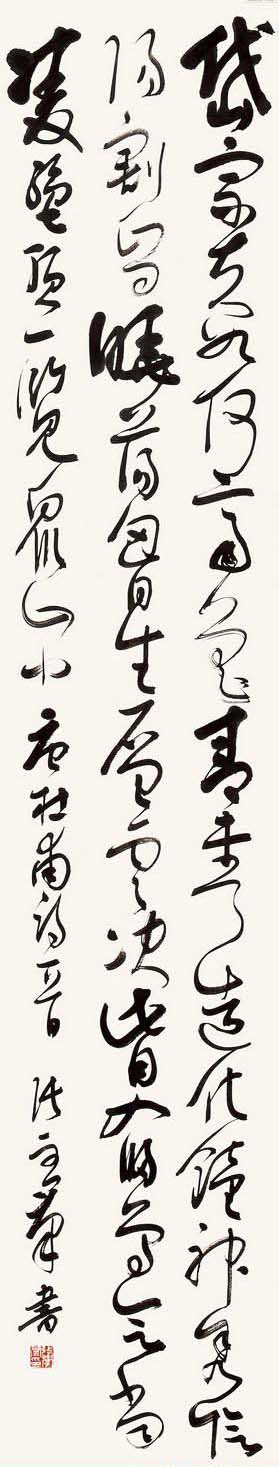 岱宗夫如何齊魯青未了造化鐘神秀陰
陽割昏曉蕩胸生層雲決眥入歸鳥會當
凌絕頂一覽眾山小 唐杜甫詩一首 張書